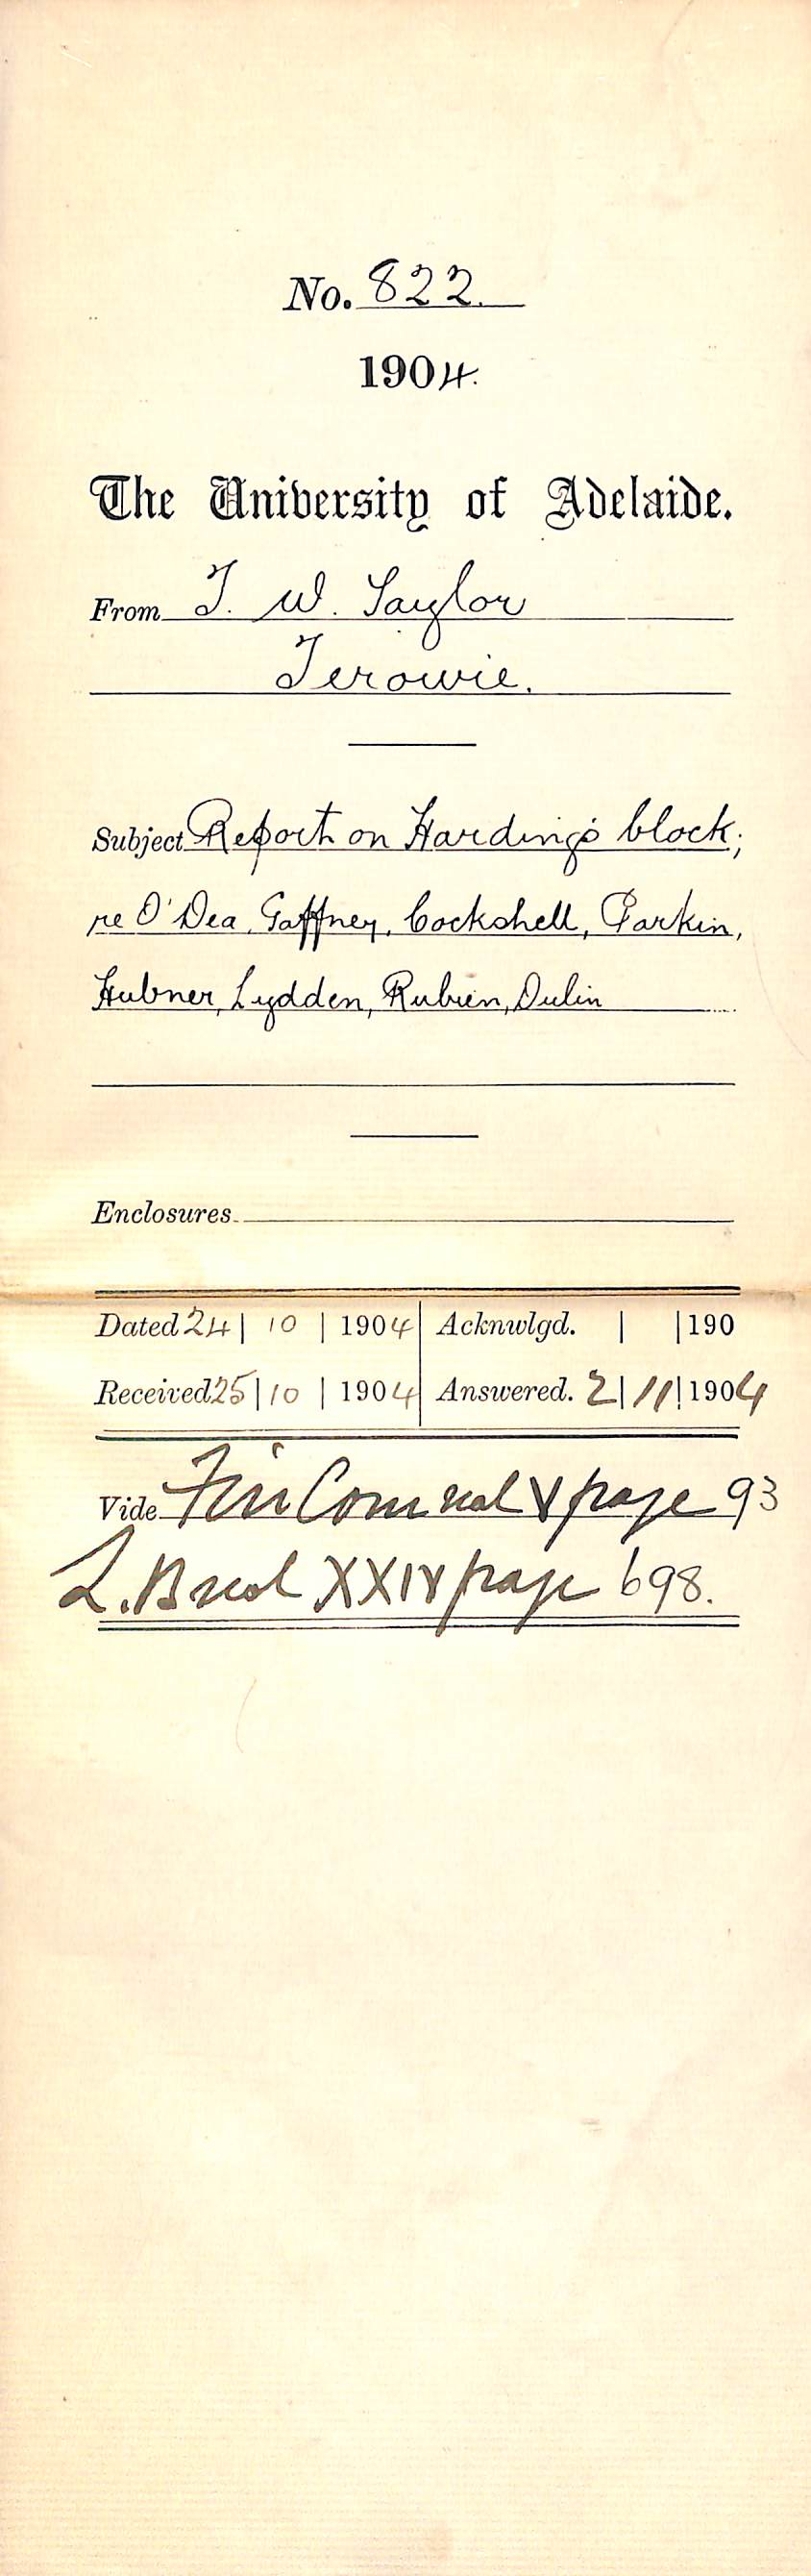 No. 822.
1904.
The University of Adelaide.
From T. W. Taylor
Terowie.
Subject Report on Harding's block;
re O'Dea, Gaffney, Cockshell, Parkin,
Hubner, Lydden, Rubien, Dulin
Enclosures
Dated 24 | 10 | 1904 Acknwlgd. | | 190
Received 25 | 10 | 1904 Answered. 2 | 11 | 1904
Vide Fin Com vol V page 93
L.B vol XXIV page 698.